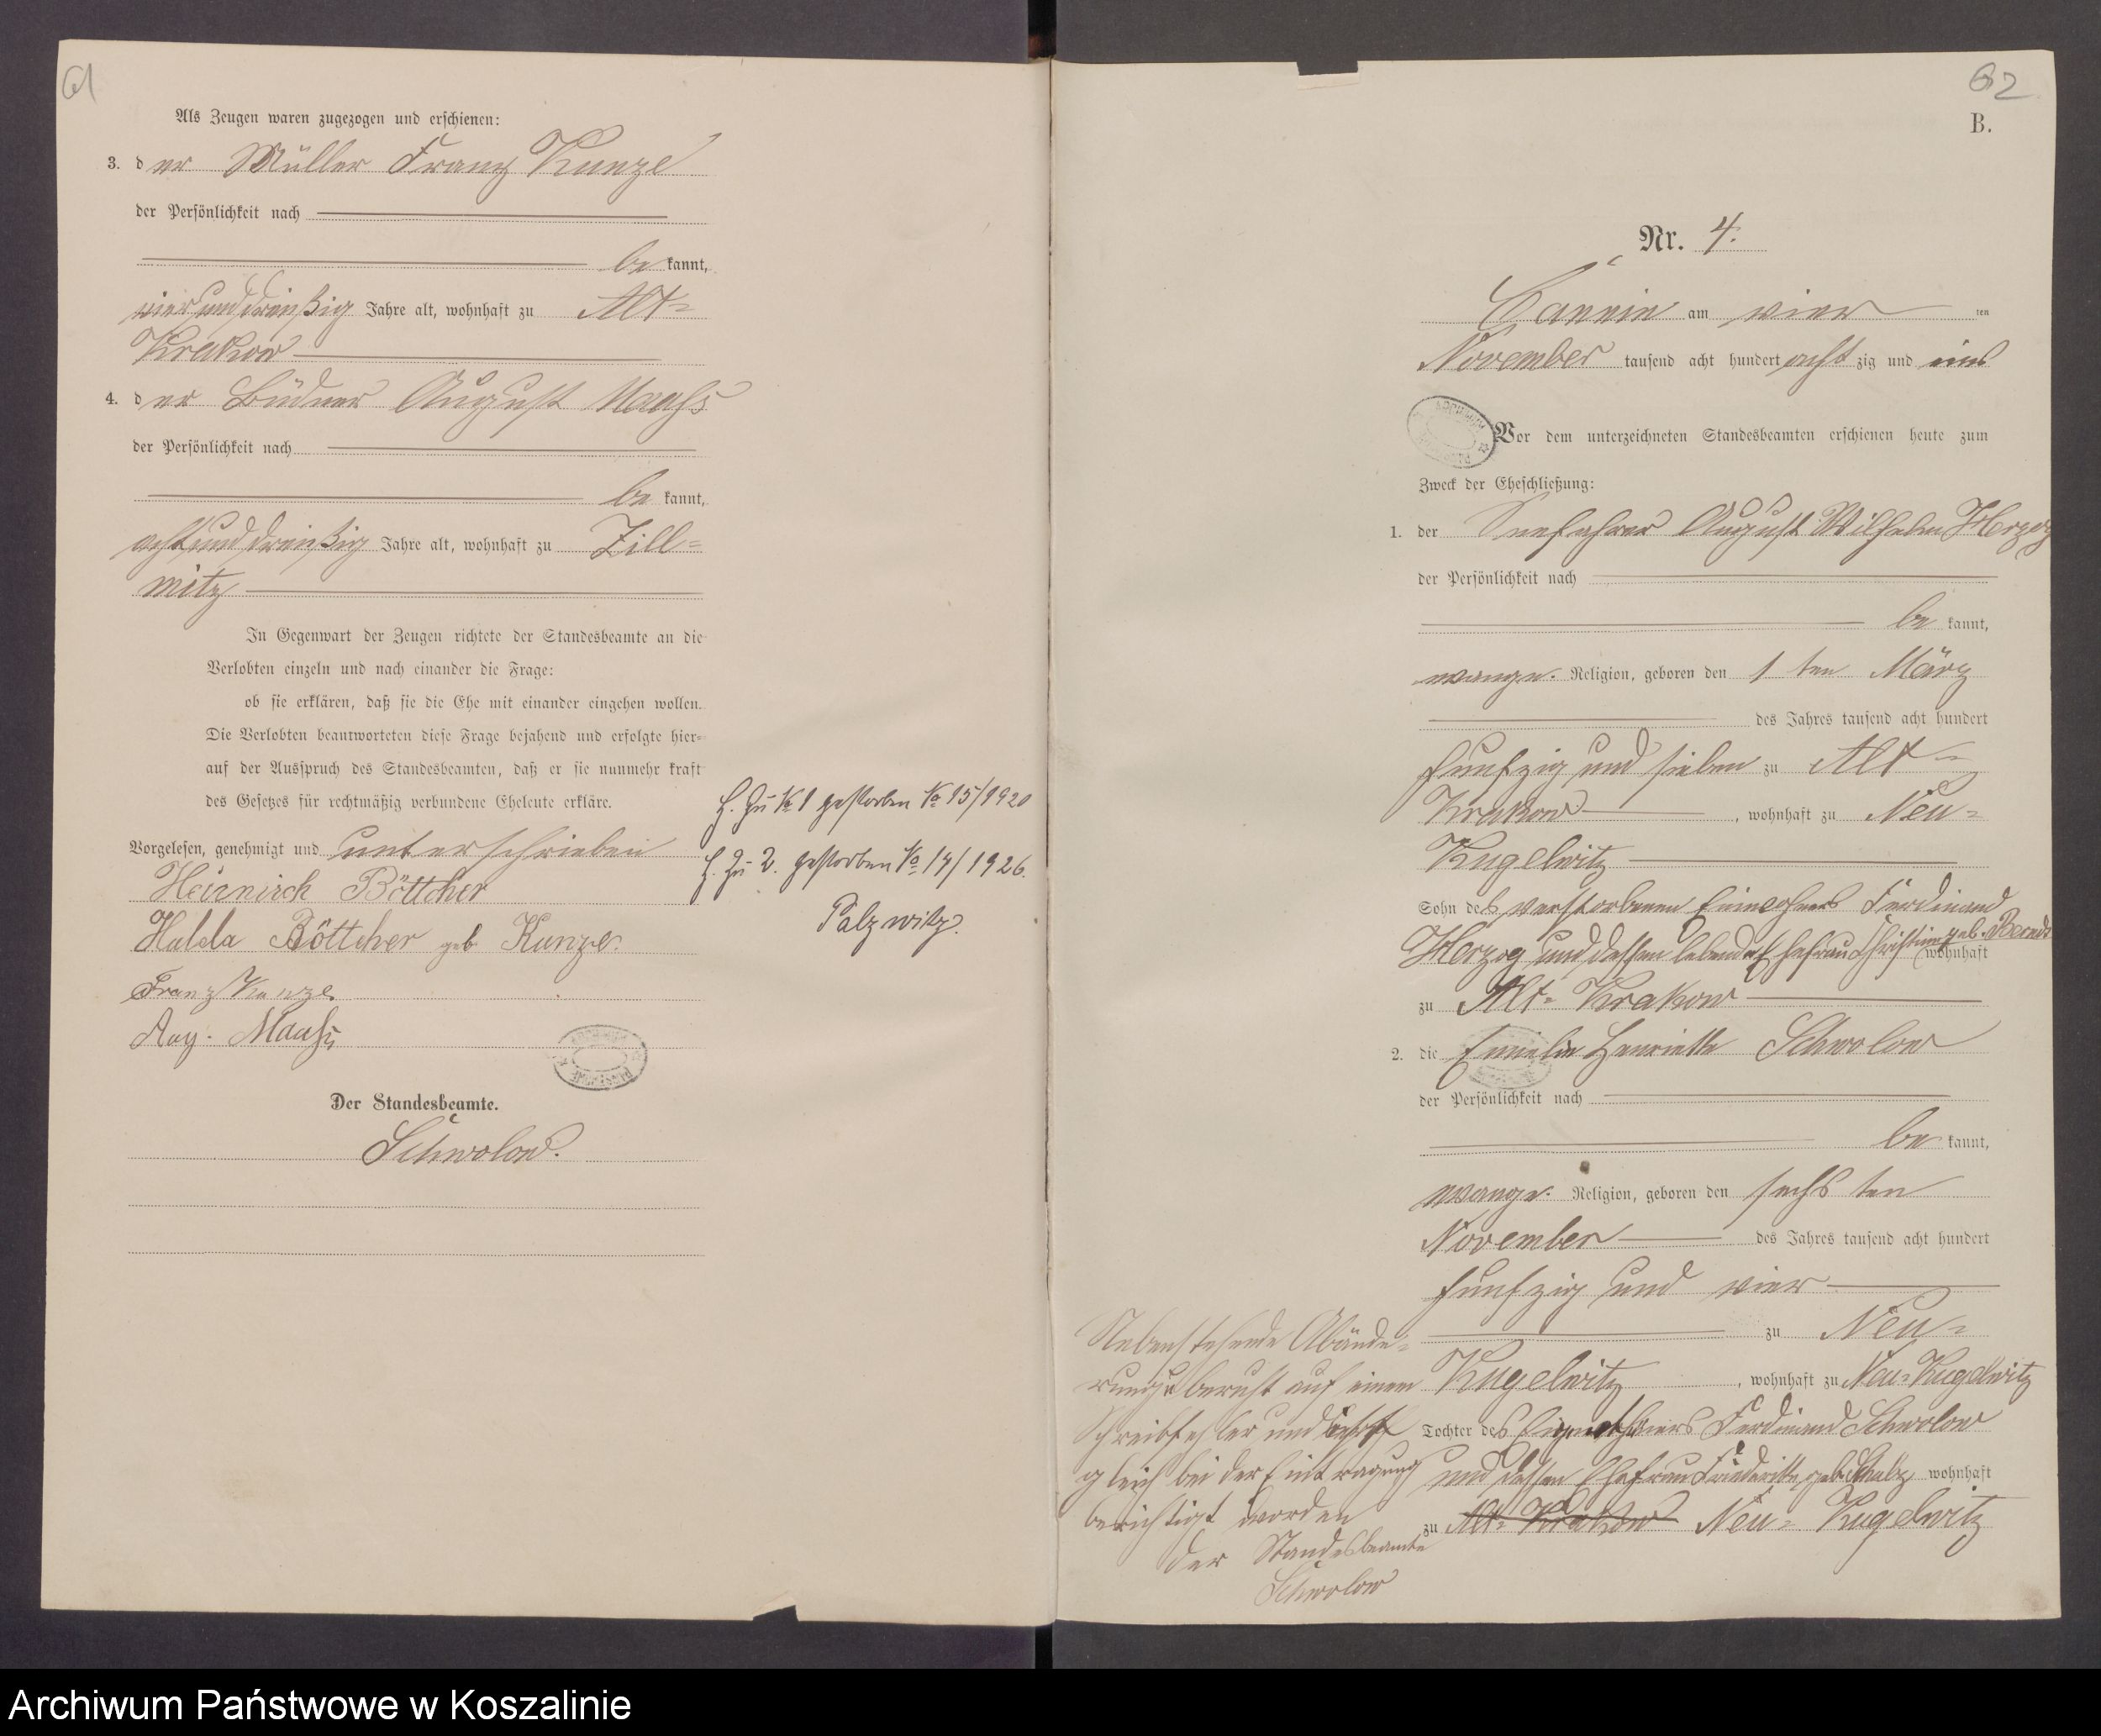 61
Als Zeugen waren zugezogen und erschienen:
3. der Müller Franz Kunze
der Persönlichkeit nach
bekannt,
vierunddreißig Jahre alt, wohnhaft zu Alt-
Krakow
4. der Büdner August Maaß
der Persönlichkeit nach
bekannt,
achtunddreißig Jahre alt, wohnhaft zu Zill-
mitz
In Gegenwart der Zeugen richtete der Standesbeamte an die
Verlobten einzeln und nach einander die Frage:
ob sie erklären, daß sie die Ehe mit einander eingehen wollen.
Die Verlobten beantworteten diese Frage bejahend und erfolgte hier-
auf der Ausspruch des Standesbeamten, daß er sie nunmehr kraft
des Gesetzes für rechtmäßig verbundene Eheleute erkläre.
Vorgelesen, genehmigt und unterschrieben
Heinrich Böttcher
Hulda Böttcher geb Kunze.
Franz Kunze.
Aug. Maaß
Der Standesbeamte.
Schwolow.
H. Zu № 1 gestorben № 15/1920
H. Zu 2. gestorben № 14/1926.
Palzwitz.
62
B.
Nr. 4.
Bannin am vier ten
November tausend acht hundert achtzig und eins
Vor dem unterzeichneten Standesbeamten erschienen heute zum
Zweck der Eheschließung:
1. der Seefahrer August Wilhelm Herzog
der Persönlichkeit nach
bekannt,
evange. Religion, geboren den 1 ten März
des Jahres tausend acht hundert
funfzig und sieben zu Alt-
Krakow, wohnhaft zu Neu-
Kugelwitz
Sohn des verstorbenen Einwohners Ferdinand
Herzog und dessen lebende Ehefrau Christine geb. Berndt wohnhaft
zu Alt-Krakow
2. die Emelie Henriette Schwolow
der Persönlichkeit nach
bekannt,
evange. Religion, geboren den sechs ten
November des Jahres tausend acht hundert
funfzig und vier
zu Neu-
Kugelwitz, wohnhaft zu Neu-Kugelwitz
Tochter des Eigenthümers Ferdinand Schwolow
und dessen Ehefrau Friederikke geb. Schulz wohnhaft
zu Alt-Krakow Neu-Kugelwitz
Nebenstehende Abände-
runge beruht auf einem
Schreibfehler und
gleich bei der Eintragung
berichtigt worden
der Standesbeamte
Schwolow
Archiwum Państwowe w Koszalinie